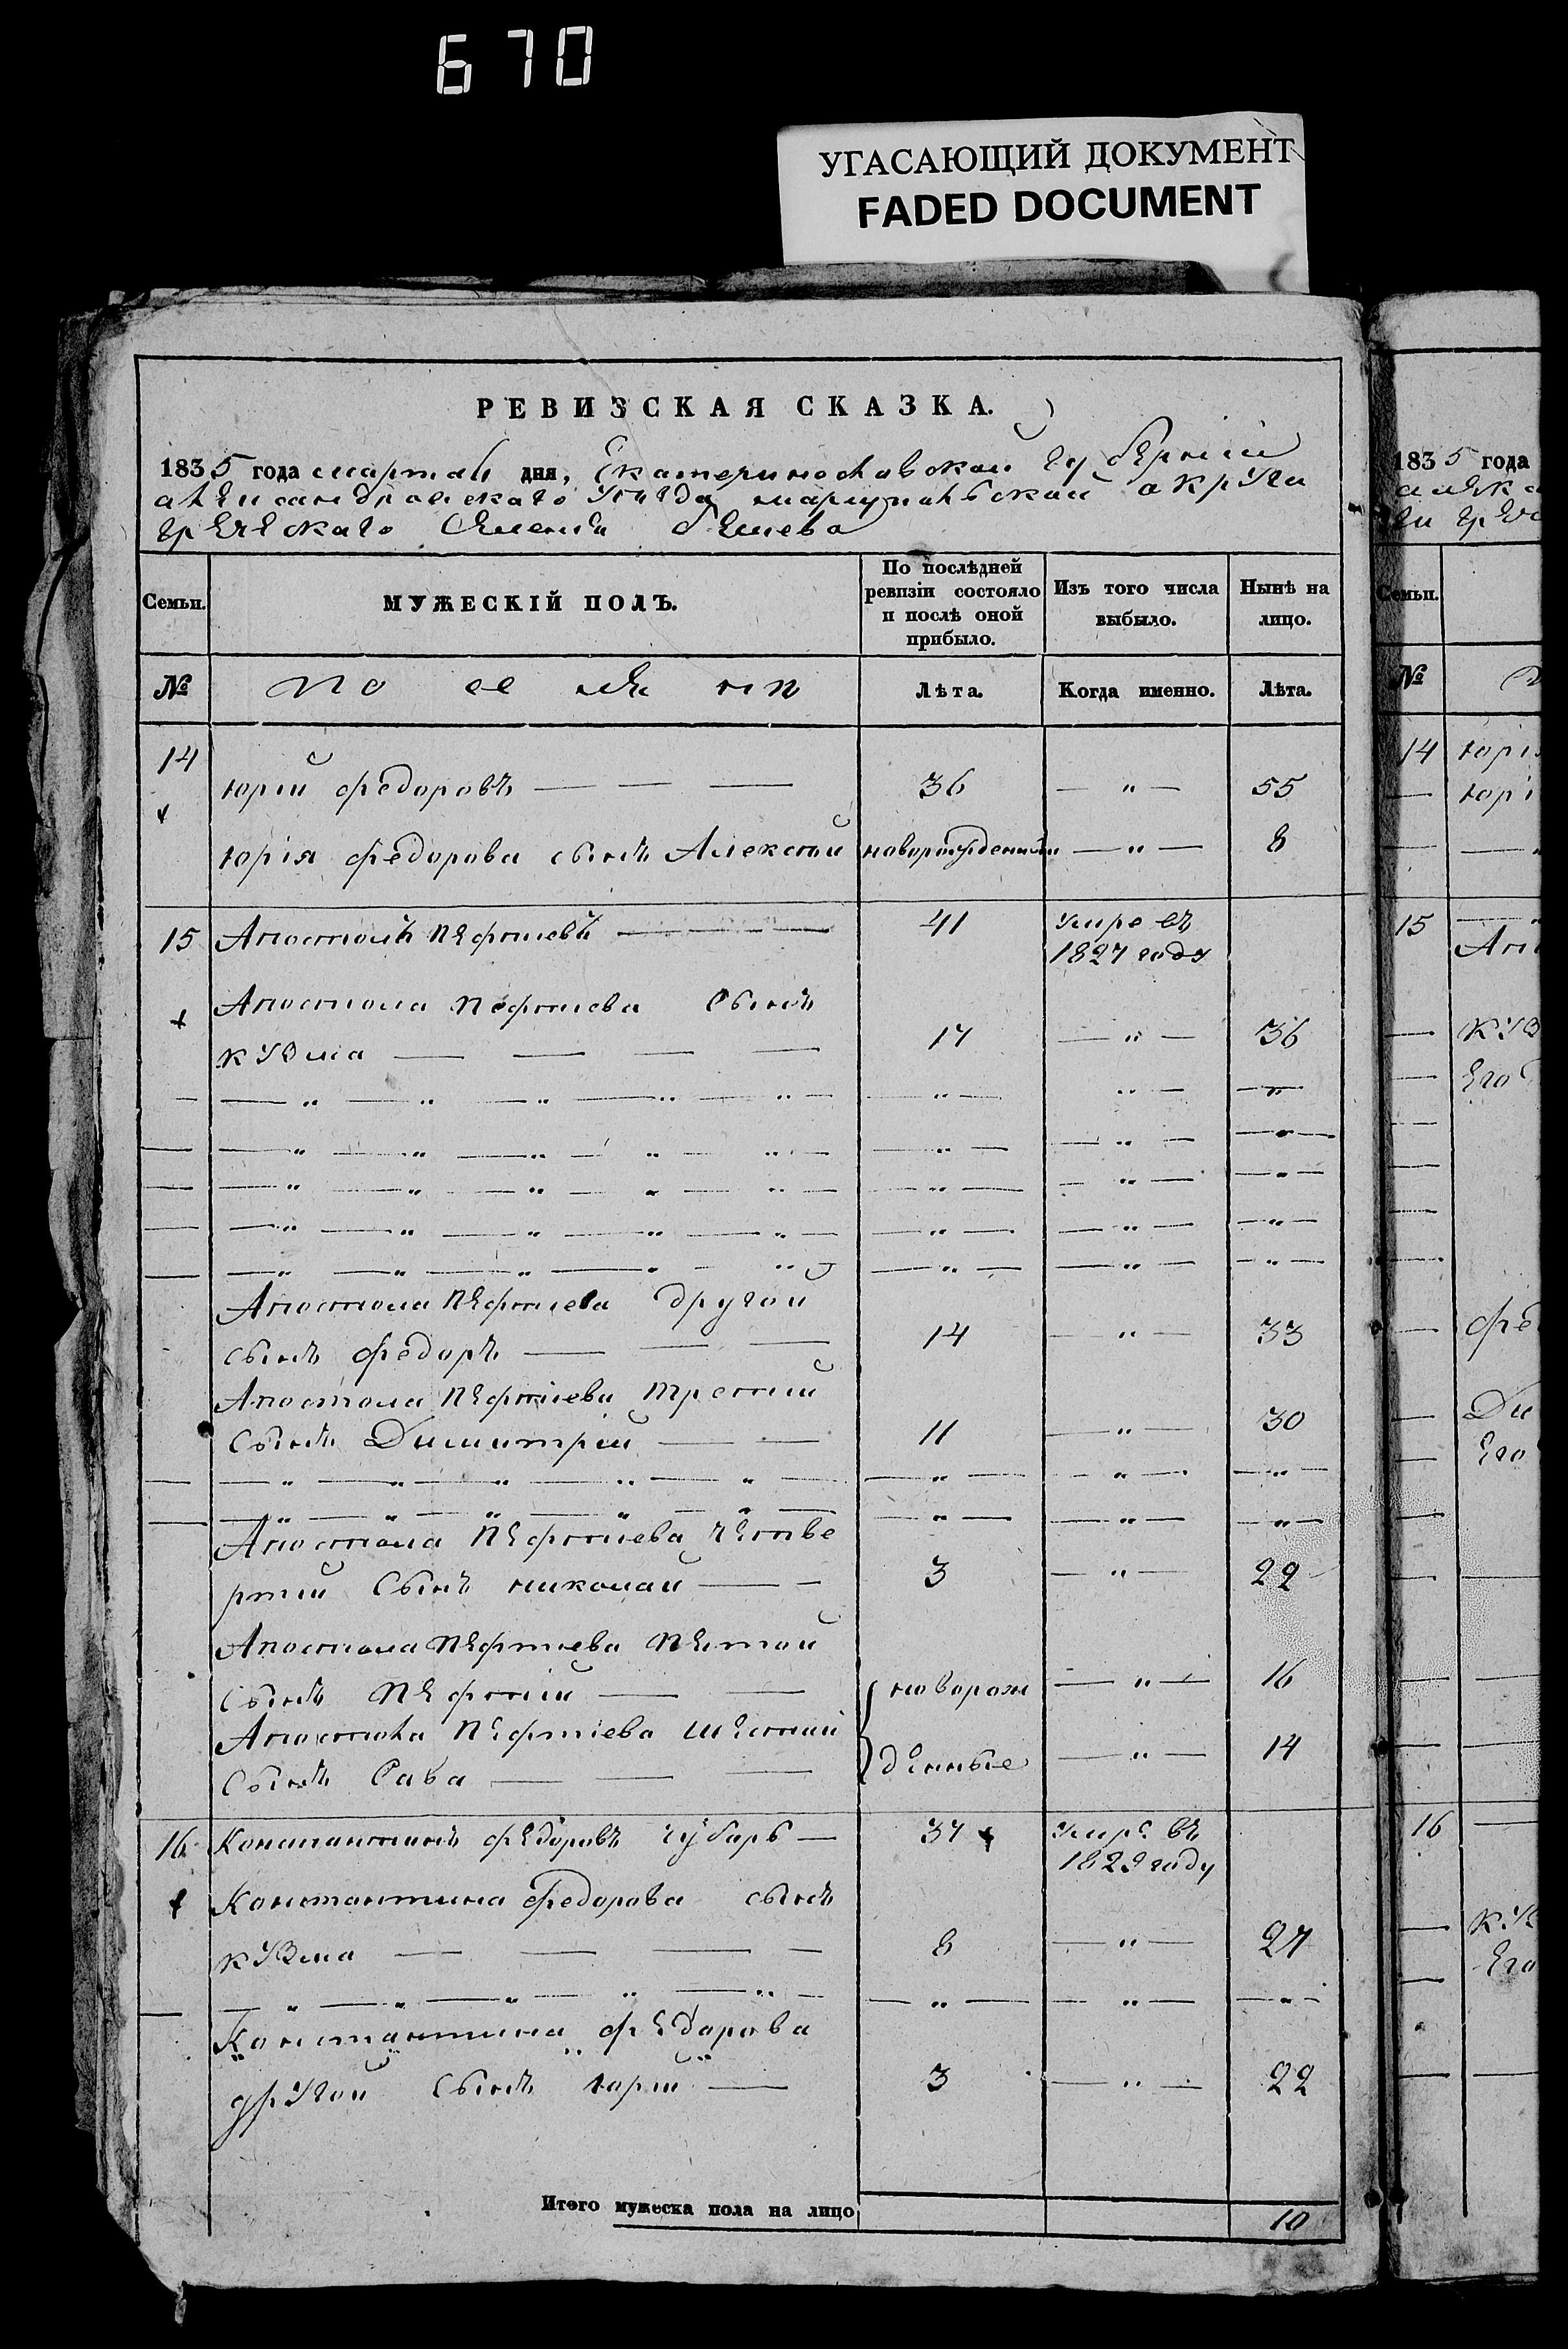 670
УГАСАЮЩИЙ ДОКУМЕНТ
FADED DOCUMENT
РЕВИЗСКАЯ СКАЗКА.
1835 года марта дня, Екатериносл​авской губернии
александровскаго уезда мариупольской округи
греческаго селенія бешева
Семьи.
МУЖЕСКІЙ ПОЛЪ.
По послѣдней ревизіи состояло и послѣ оной прибыло.
Изъ того числа выбыло.
Нынѣ на лицо.
№
Лѣта. Когда именно. Лѣта.
14 юрій федоровъ 36 — „ — 55
юрія федорова сынъ Алексѣй новорожденный — „ — 8
15 Апостолъ пефтіевъ 41 умре въ
1827 году
Апостола пефтіева Сынъ
кузма 17 — „ — 36
Апостола пефтіева другой
сынъ федоръ 14 — „ — 33
Апостола пефтіева третій
Сынъ Димитрій 11 — „ — 30
Апостола пефтіева четве
ртій Сынъ николай 3 — „ — 22
Апостола пефтіева петой
Сынъ пефтій новорож — „ — 16
Апостола пефтіева шестій
Сынъ Сава денные — „ — 14
16 Константинъ федоровъ чубарь 37 умре въ
1829 году
Константина федорова сынъ
кузма 8 — „ — 27
Константина федорова
другой Сынъ юрій 3 — „ — 22
Итого мужеска пола на лицо 10
1835 года
Семьи.
№
14
15
16